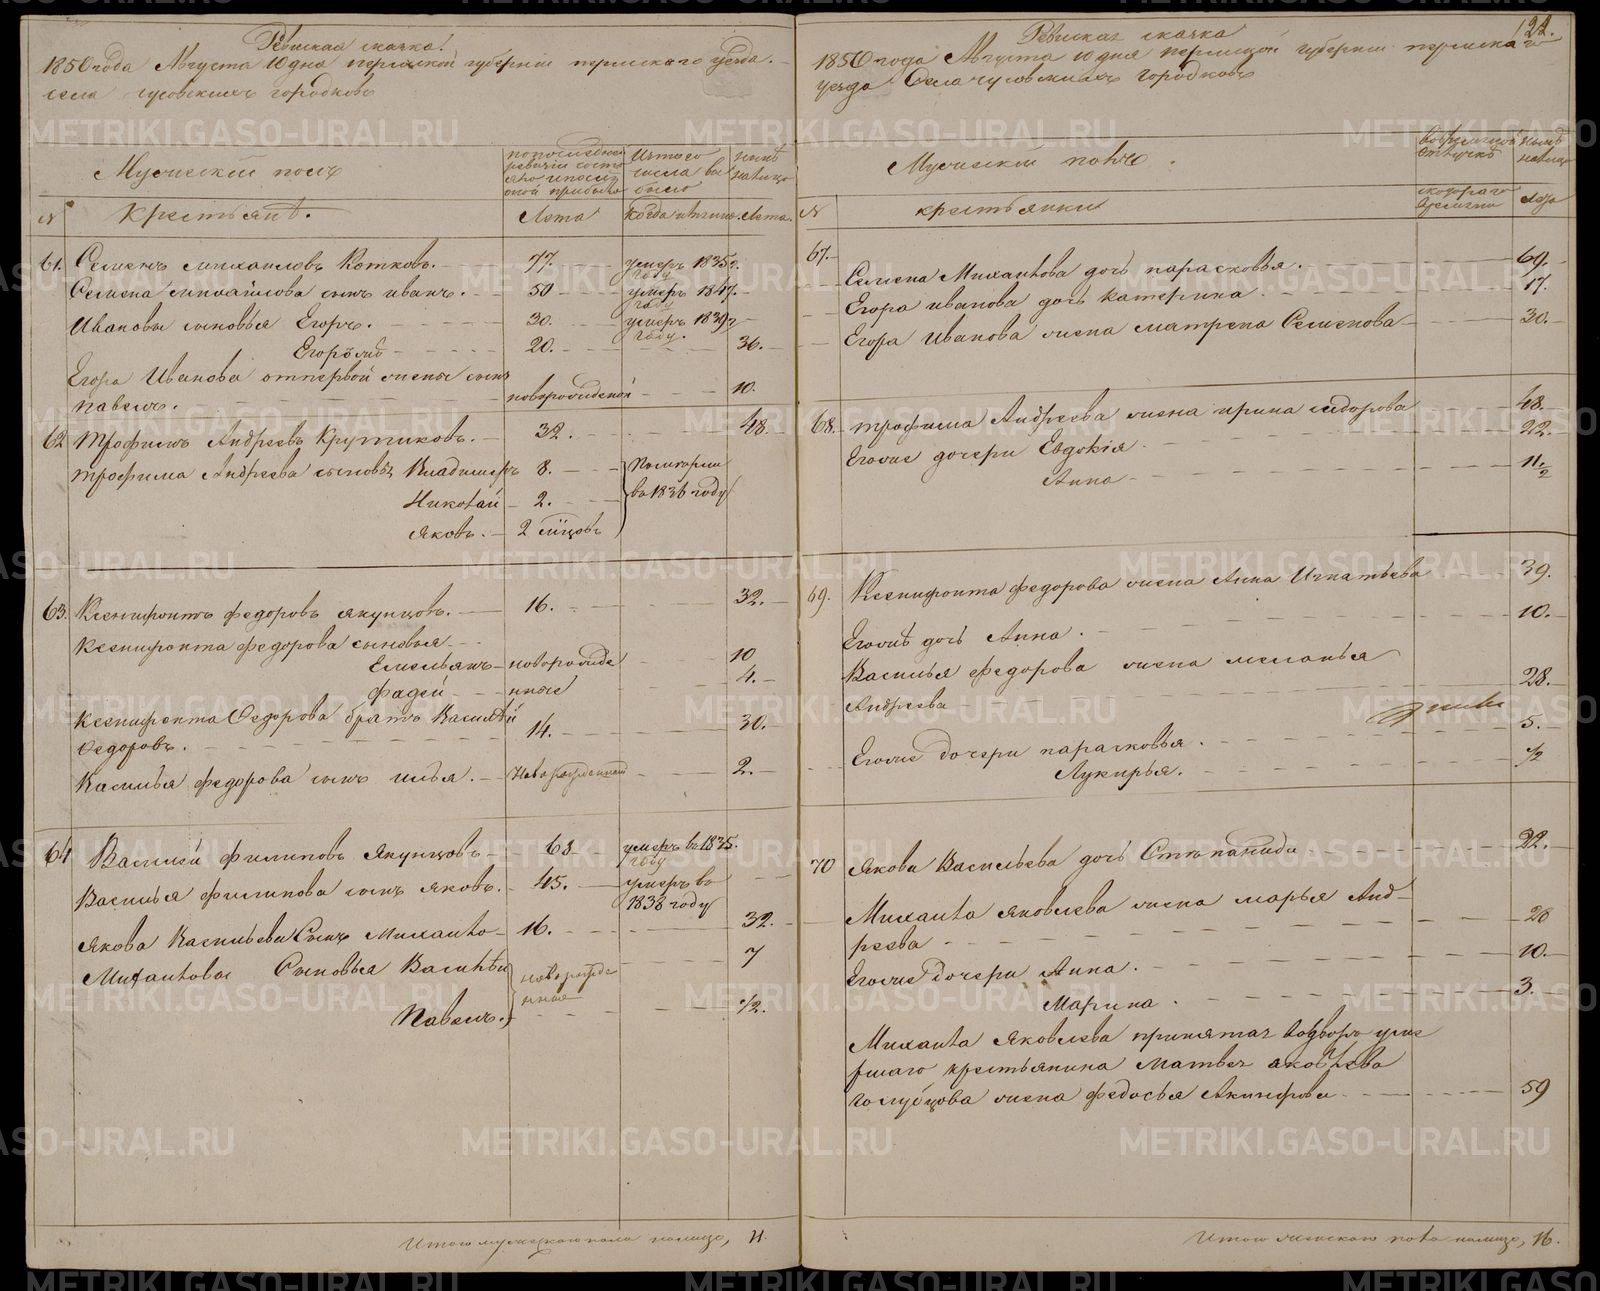 Ревиская скаска.
1850 года Августа 10 дня пермской губернiи пермскаго уезда.
села чусовскихъ городковъ
Мужескiй полъ
Крестьянѣ.
Лета
Когда именно.
Лета.
61. Семенъ михаиловъ Котковъ. 77. умеръ 1835 году
Семена михайлова сынъ иванъ. 50 умеръ 1847. году
Ивановы сыновья Егоръ. 30. умеръ 1839 году.
20. 36.
Егора Иванова отпервой жены сынъ
павелъ. новорожденой 10.
62 трофимъ Андреевъ Крутиковъ. 32. 48.
трофима Андреева сыновья Владимеръ 8.
Николай 2. во 1836 году
яковъ. 2 мѣцовъ
63. Ксенифонтъ федоровъ якунцовъ. 16. 32.
Ксенифонта федорова сыновья
Емельянъ новорожде 10
фадей нные 4.
Ксенифонта Федорова братъ Василѣй
Федоровъ. 14. 30.
Василья федорова сынъ илья. Новорожденной 2.
64 Василей филиповъ Якунцовъ 68 умеръ въ 1835. году
Василья филипова сынъ яковъ. 45. умеръ во
1838 году
Якова Васильева Сынъ Михаило 16. 32.
Михаиловы Сыновья Василѣй 7
новорожде
нные
Павелъ. 1/2.
Итого мужескаго пола налицо, 11.
122.
Ревиская скаска
1850 года Августа 10 дня пермской губернiи пермскаго
уезда Села чусовскихъ городковъ
Мужескiй полъ.
крестьянки
лета
67. Семена Михаилова дочь парасковья. 69.
Егора иванова дочь катерина. 17.
Егора Иванова жена матрена Семенова 30.
68. трофима Андреева жена ирина сидорова 48.
Егожие дочери Евдокiя 22.
Анна 11 1/2
69. Ксенифонта федорова жена Анна Игнатьева 39.
Егожѣ дочь Анна. 10.
Василья федорова жена меланья
Андреева 28.
Егожие дочери парасковья. 5.
Лукирья. 1/2
70 Якова Васильева дочь Степанида 22.
Михаила яковлева жена марья Анд-
реева 28
Егожие дочери Анна. 10.
Марина. 3.
Михаила Яковлева принятая водворъ уме
ршаго крестьянина Матвея яковлева
голубцова жена федосья Акинфова 59
Итого женскаго пола налицо, 16.
METRIKI.GASO-URAL.RU